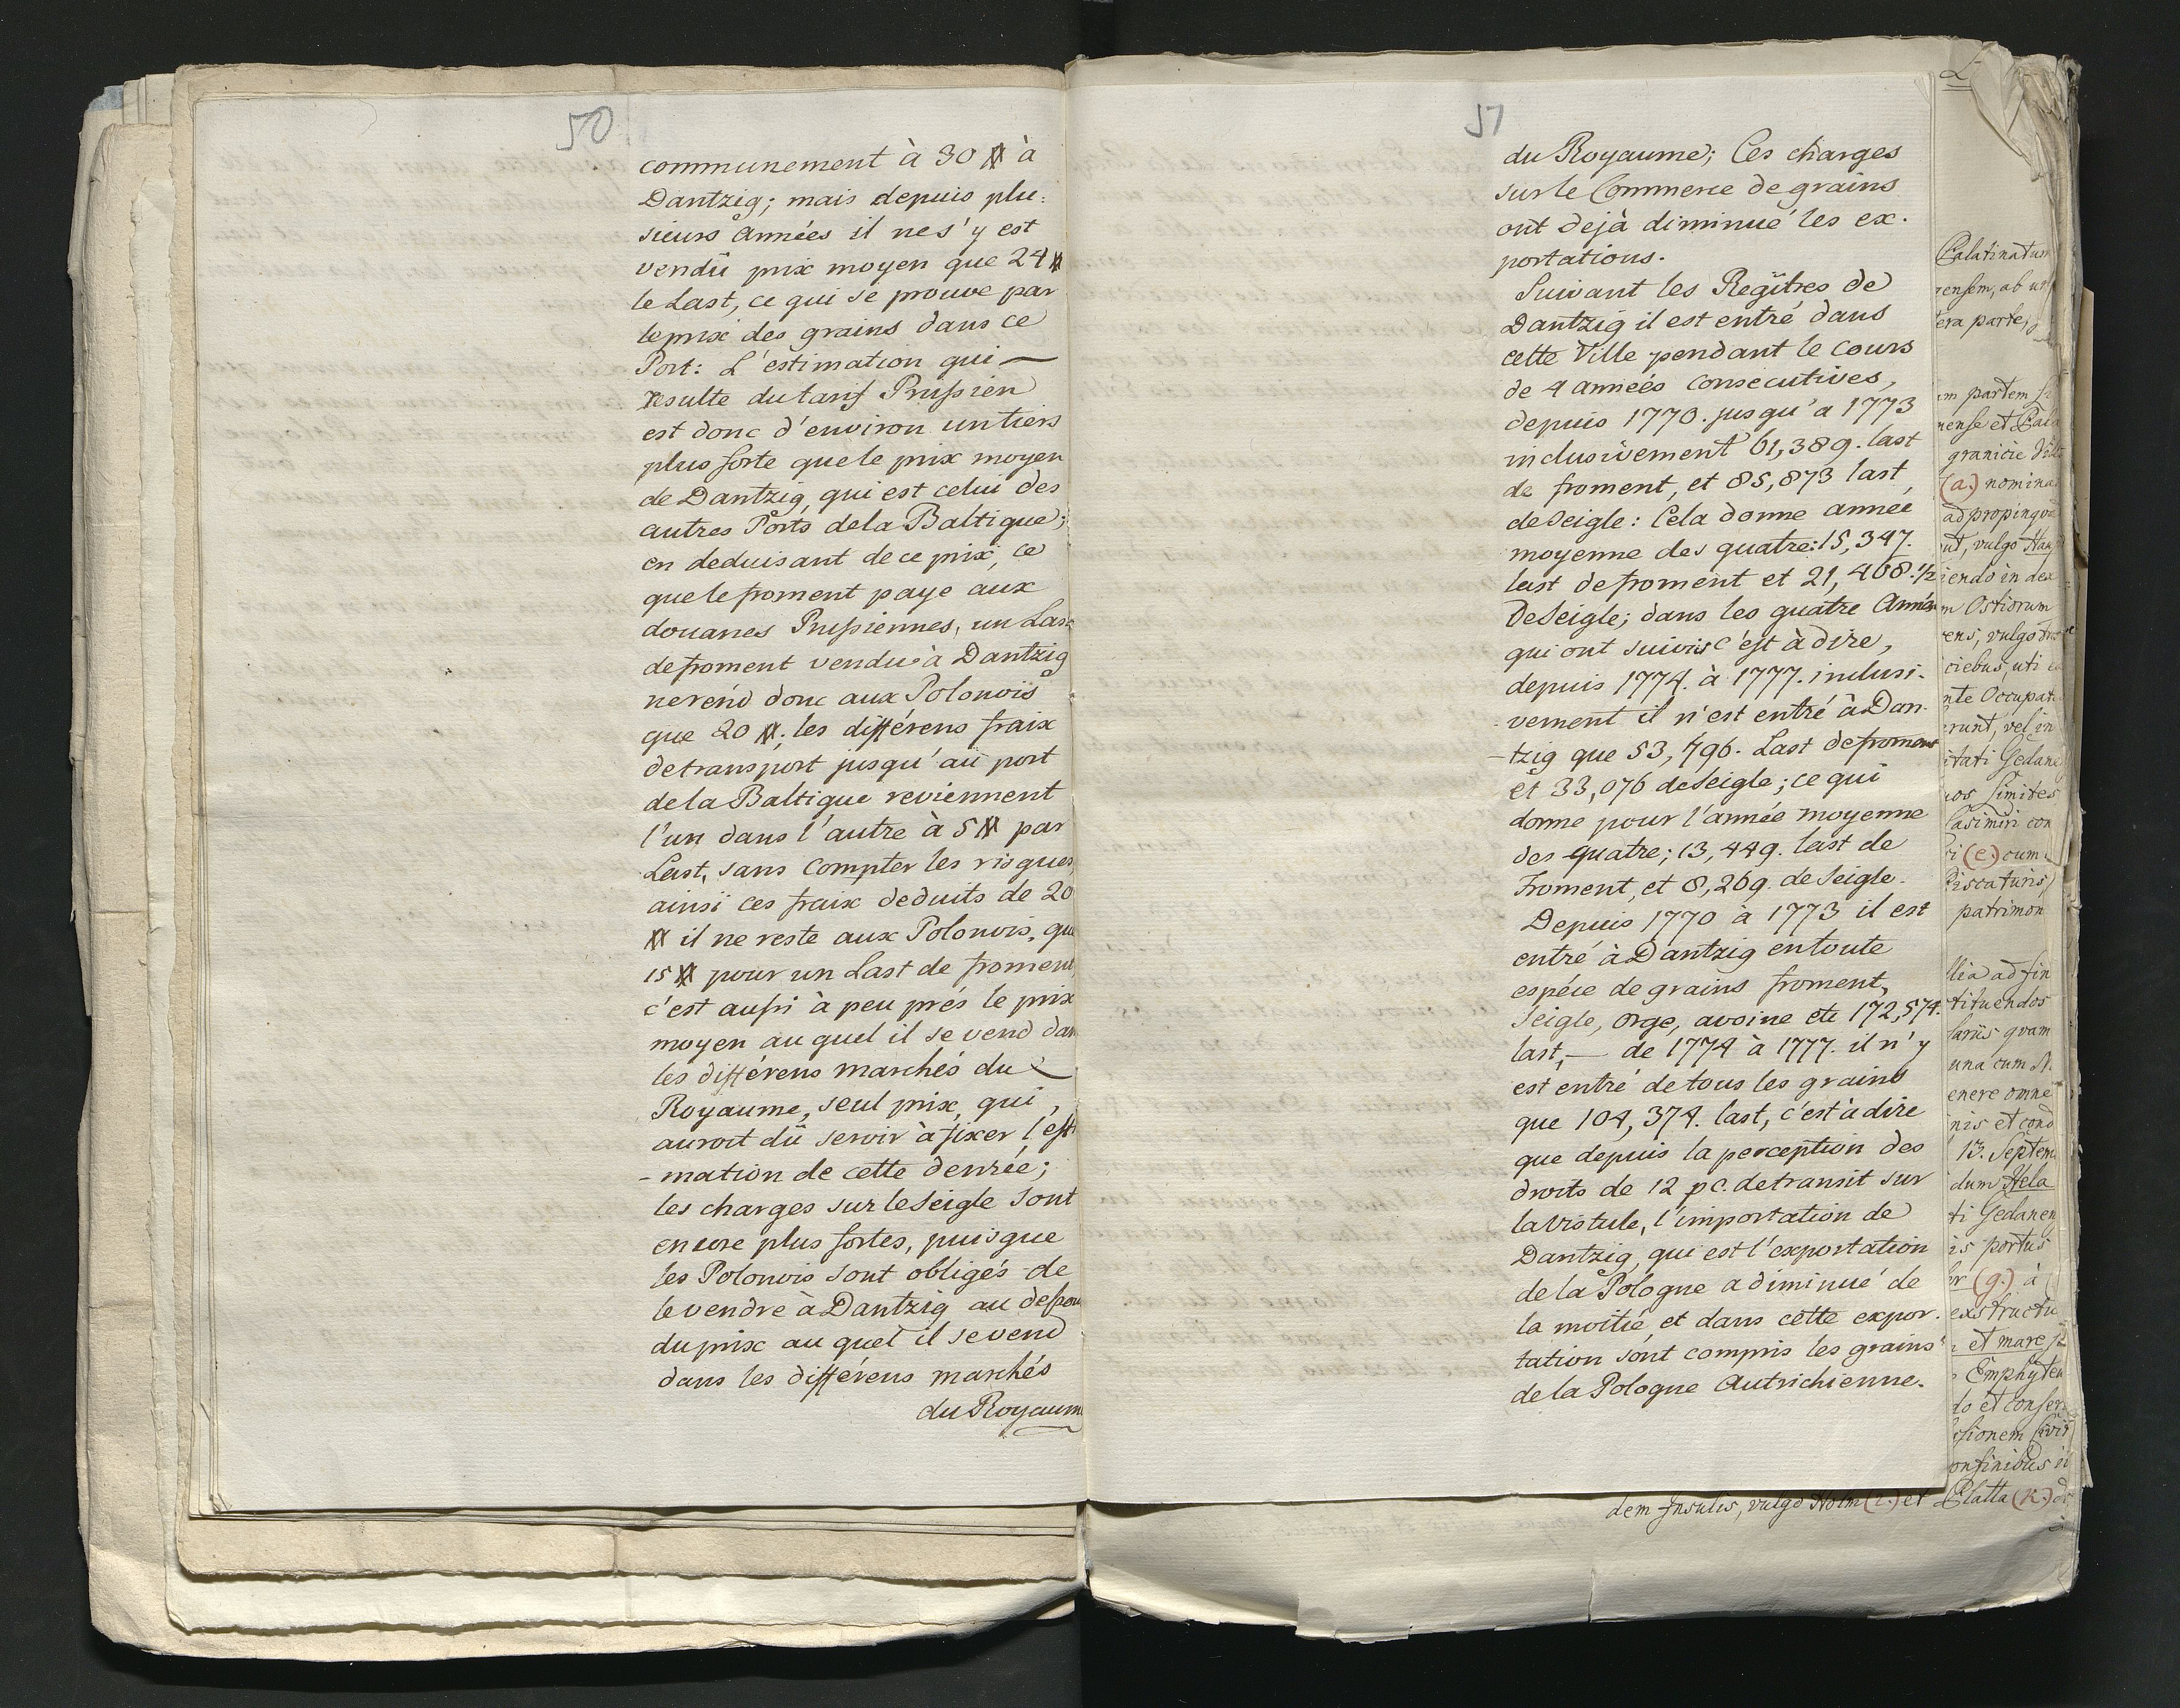 50
communement à 30 # à
Dantzig; mais depuis plu:
sieurs années il ne s'y est
vendû prix moyen que 24 #
le Last, ce qui se prouve par
le prix des grains dans ce
Port: L'estimation qui —
resulte du tarif Prussien
est donc d'environ un tiers
plus forte que le prix moyen
de Dantzig, qui est celui des
autres Ports de la Baltique;
en deduisant de ce prix, ce
que le froment paye aux
douanes Prussiennes, un Last
de froment vendu à Dantzig
ne rend donc aux Polonois
que 20 #; les différens fraix
de transport jusqu'au port
de la Baltique reviennent
l'un dans l'autre à 5 # par
Last, sans compter les risques
ainsi ces fraix deduits de 20
# il ne reste aux Polonois, que
15 # pour un Last de froment
c'est aussi à peu prés le prix
moyen au quel il se vend dan
les différens marchés du
Royaume, seul prix, qui,
auroit dû servir à fixer l'esti
-mation de cette denrée;
les charges sur le Seigle sont
encore plus fortes, puisque
les Polonois sont obligés de
le vendre à Dantzig au dessou
du prix au quel il se vend
dans les différens marchés
du Royaume
51
du Royaume; Ces charges
sur le Commerce de grains
ont dejà diminué les ex.
portations.
Suivant les Regîtres de
Dantzig il est entré dans
cette Ville pendant le cours
de 4 années consecutives,
depuis 1770. jusqu'a 1773
inclusivement 61,389. last
de froment, et 85,873 last,
de Seigle: Cela donne année
moyenne des quatre: 15,347.
last de froment et 21,468. 1/2
de Seigle; dans les quatre Années
qui ont suivis c'est à dire,
depuis 1774. à 1777. inclusi-
-vement il n'est entré à Dan-
-tzig que 53,796. Last de froment
et 33,076 de Seigle; ce qui
donne pour l'année moyenne
des quatre; 13,449. last de
Froment, et 8,269. de Seigle.
Depuis 1770 à 1773 il est
entré à Dantzig en toute
espéce de grains froment,
Seigle, orge, avoine etc 172,574.
last, — de 1774 à 1777. il n'y
est entré de tous les grains
que 104,374. last, c'est à dire
que depuis la perception des
droits de 12 pc. de transit sur
la Vistule, l'importation de
Dantzig, qui est l'exportation
de la Pologne a diminué de
la moitié, et dans cette expor-
tation sont compris les grains
de la Pologne Autrichienne.
Palatinatum
rensem, ab ur
era parte,
m partem
nense et Pala
granicie
(a.) nomina
ad propinqva
ut, vulgo Haup
iendo in dex
m Ostiorum
ens, vulgo
ciebus, uti
nte Occupat
erunt, vel in
itati Gedane
os Limites
Casimiri con
i (e.) cum
Piscaturis
patrimon
llia ad fin
tituendos
lariis qvam
una cum
enere omne
nis et cond
13. Septem
dum Hela
ti Gedanen
is portus
r (g.) à
exstructu
et mare
Emphyteu
do et conser
ssionem
onfinibus
dem Insulis, vulgo Holm (i.) et Platta (k.)